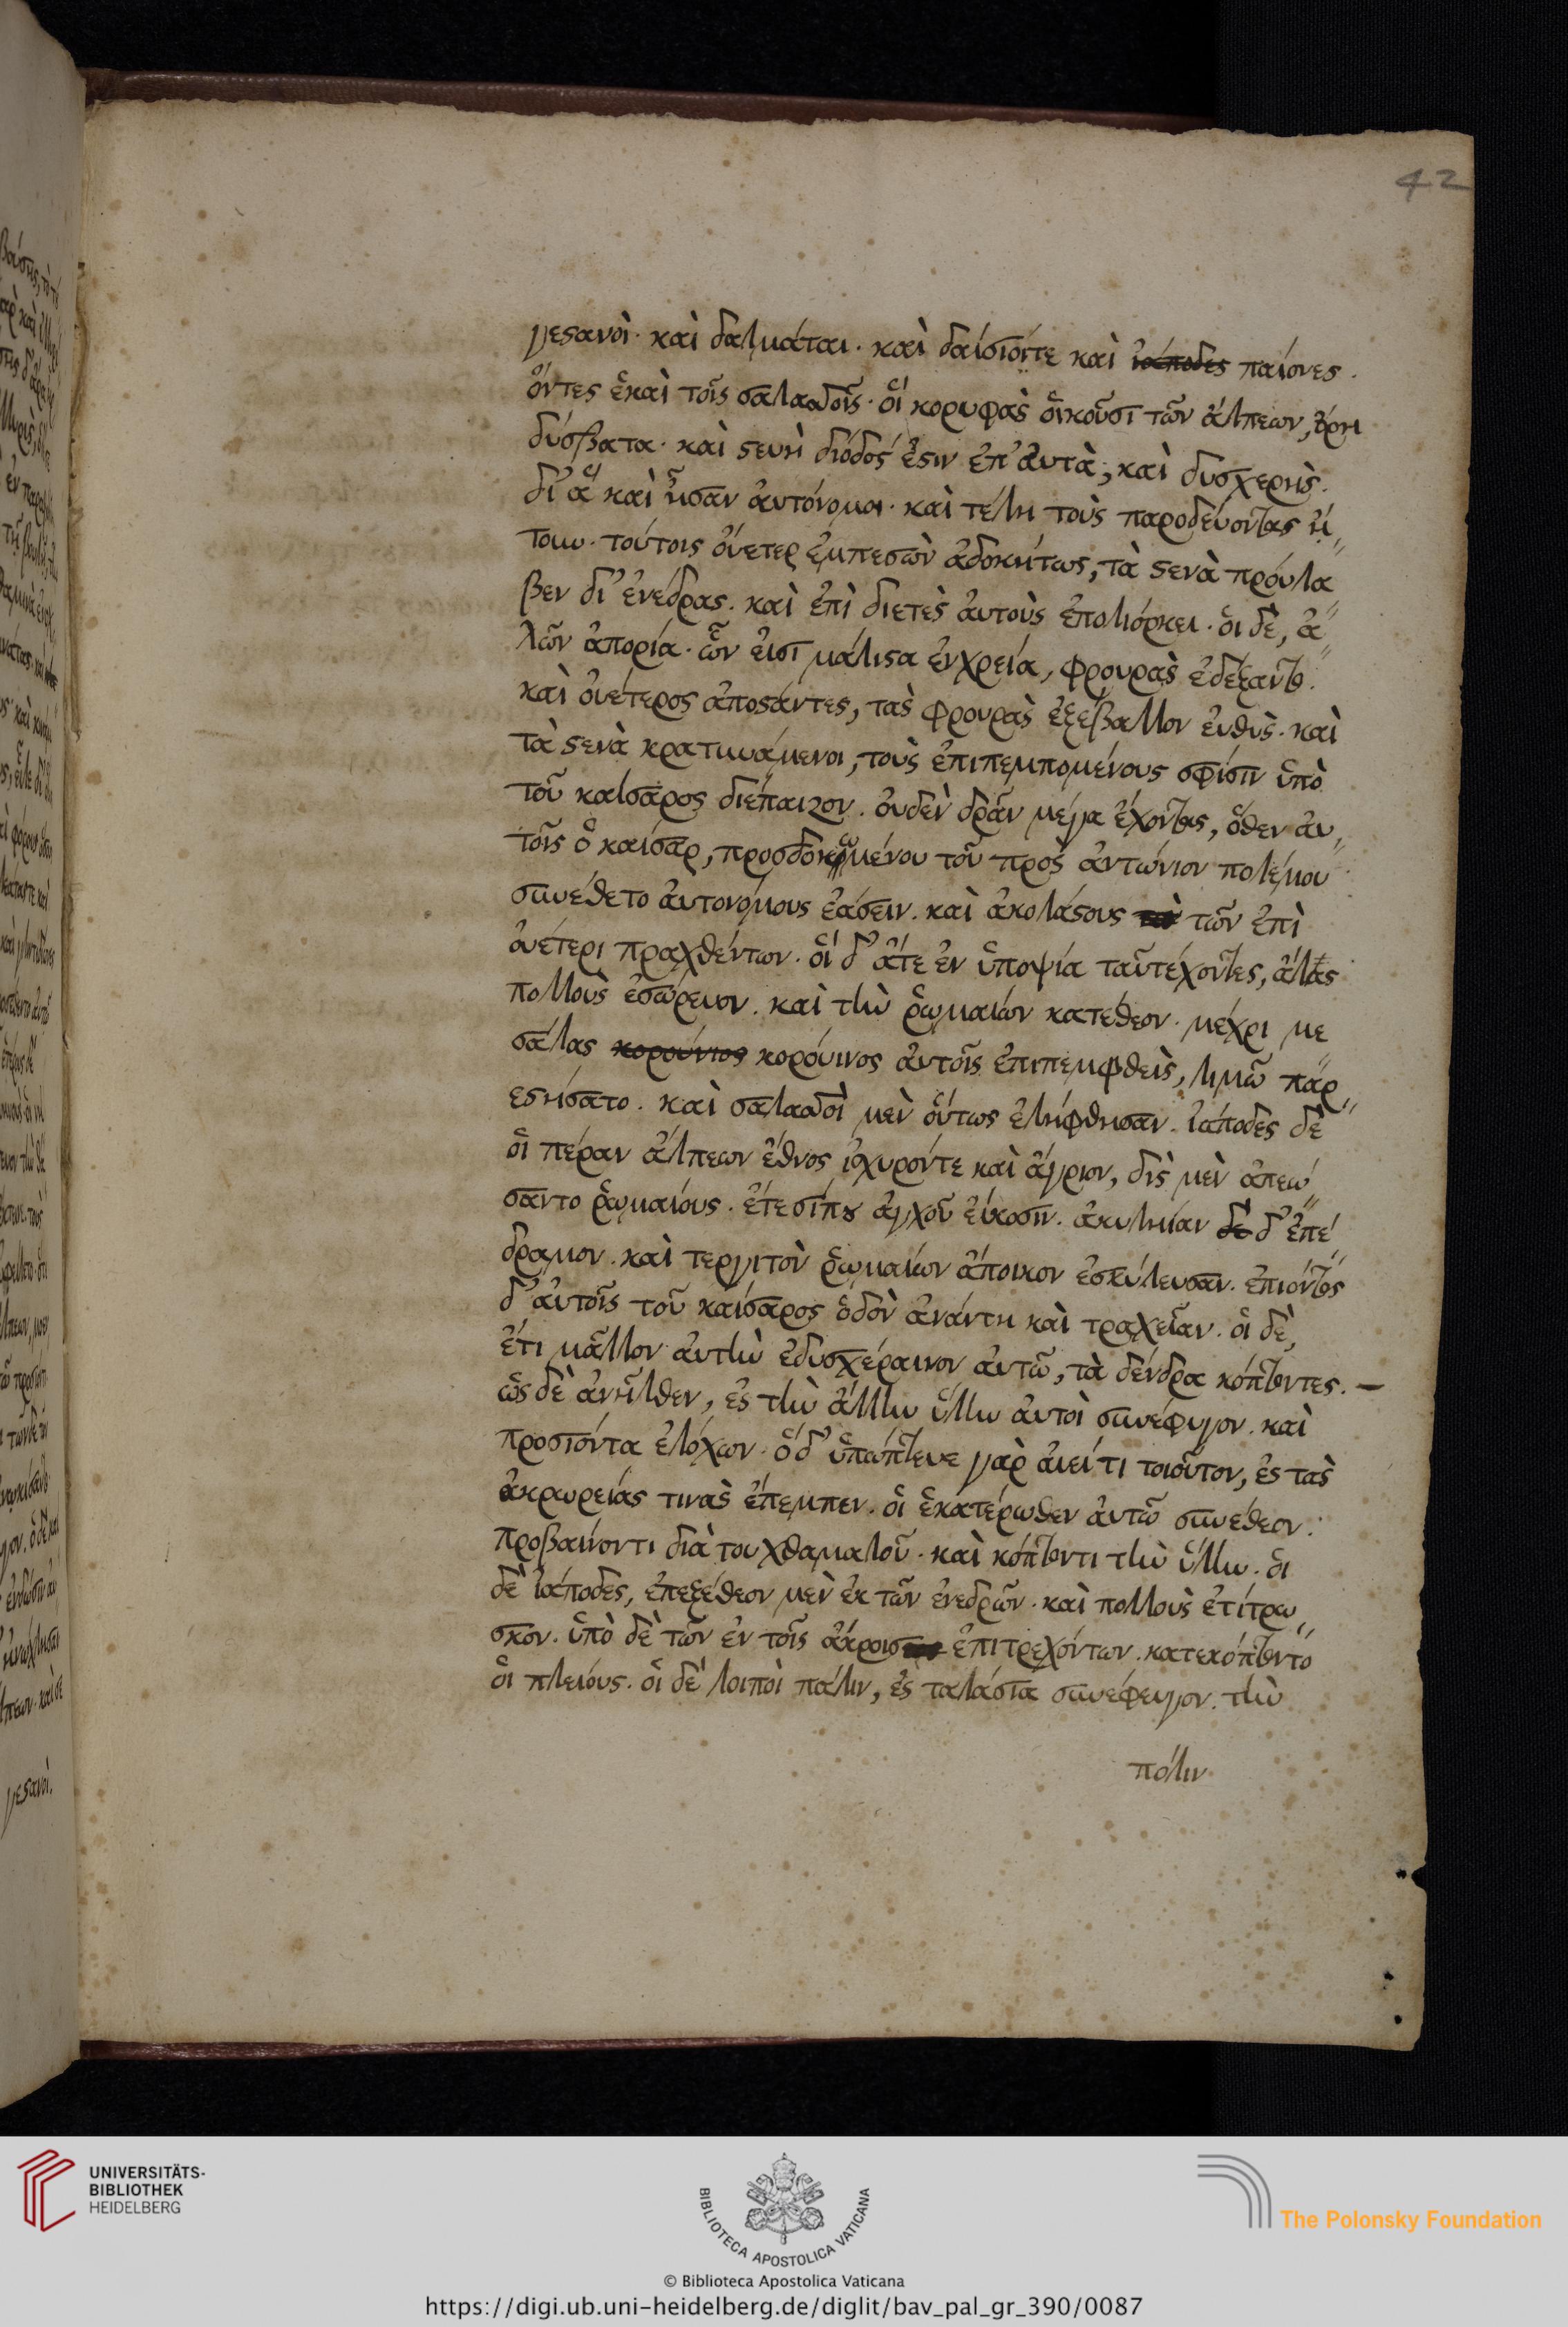 42
γεστανοὶ· καὶ δαλμάται· καὶ δαίσιοίτε καὶ ἰάποδες παίονες.
ὄντες ἑκαὶ τοῖς σαλασσοῖς· οἵ κορυφὰς ὀικοῦσι τῶν ἄλπεων, ὄρη
δύσβατα· καὶ στενὴ δίοδός ἐστιν ἐπ' ἀυτὰ, καὶ δυσχερὴς.
δι' ἃ καὶ ἦσαν ἀυτόνομοι· καὶ τέλη τοὺς παροδεύοντας ἤ
τουν· τούτοις ὀύετερ ἐμπεσὼν ἀδοκήτως, τὰ στενὰ πρόυλα
βεν δι' ἐνέδρας. καὶ ἐπὶ διετὲς ἀυτοὺς ἐπολιόρκει. ὁι δὲ, ἁ
λῶν ἀπορία· ὧν ἐισι μάλιστα ἐνχρεία, φρουρὰς ἐδέξαντο.
καὶ ὀυέτερος ἀποστάντες, τὰς φρουρὰς ἐξέβαλλον ἐυθὺς. καὶ
τὰ στενὰ κρατυνάμενοι, τοὺς ἐπιπεμπομένους σφίσιν ὑπὸ
τοῦ καίσαρος διέπαιζον. ὀυδὲν δρᾶν μέγα ἔχοντας, ὅθεν ἀυ
τοῖς ὁ καίσαρ, προσδοκωμένου τοῦ πρὸς ἀντώνιον πολέμου
συνέθετο ἀυτονόμους ἐάσειν. καὶ ἀκολάστους τὰ τῶν ἐπὶ
ὀυέτερι πραχθέντων. οἵ δ' ἅτε ἐν ὑποψία ταῦτέχοντες, ἅλας
πολλοὺς ἐσώρευον. καὶ τὴν ῥωμαίων κατέθεον. μέχρι με
σάλας κορούνιος κορόυινος ἀυτοῖς ἐπιπεμφθεὶς, λιμῶ παρ
εστήσατο. καὶ σαλασσοὶ μὲν οὕτως ἐλήφθησαν. ἰάποδες δὲ
ὁι πέραν ἄλπεων ἔθνος ἰσχυρόντε καὶ ἄγριον, δὶς μὲν ἀπεώ
σαντο ῥωμαίους. ἔτεσίπου ἀγχοῦ εἴκοσιν. ἀκυληίαν δὲ δ' ἐπέ
δραμον. καὶ τεργιτὸν ῥωμαίων ἄποικον ἐσκύλευσαν. ἐπιόντος
δ' ἀυτοῖς τοῦ καίσαρος ὁδὸν ἀνάντη καὶ τραχεῖαν. οἱ δὲ,
ἔτι μᾶλλον ἀυτὴν ἐδυσχέραινον ἀυτῶ, τὰ δένδρα κόπτοντες. —
ὡς δὲ ἀνῆλθεν, ἐς τὴν ἄλλην ὕλην ἀυτοὶ συνέφυγον. καὶ
προσιόντα ἐλόχων. ὁ δ' ὑπώπτευε γὰρ ἀιεί τι τοιοῦτον, ἐς τὰς
ἀκρωρείας τινὰς ἔπεμπεν. οἱ ἑκατέρωθεν ἀυτῶ συνέθεον.
προβαίνοντι διὰ του χθαμαλοῦ· καὶ κόπτοντι τὴν ὕλην. ὁι
δὲ ἰάποδες, ἐπεξέθεον μὲν ἐκ τῶν ἐνεδρῶν. καὶ πολλοὺς ἐτίτρω
σκον. ὑπὸ δὲ τῶν ἐν τοῖς ἄκροις ἐπιτρεχόντων. κατεκόπτοντο
ὁι πλείους. οἱ δὲ λοιποὶ πάλιν, ἐς ταλάσια συνέφευγον. τὴν
πόλιν
UNIVERSITÄTS-
BIBLIOTHEK
HEIDELBERG
BIBLIOTECA APOSTOLICA VATICANA
The Polonsky Foundation
© Biblioteca Apostolica Vaticana
https://digi.ub.uni-heidelberg.de/diglit/bav_pal_gr_390/0087